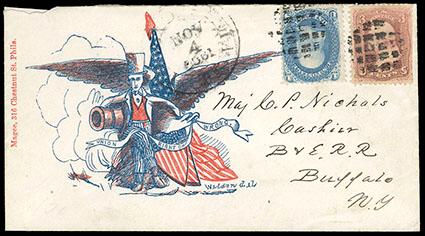 Magee, 316 Chestnut St. Phila.
NOV
4
UNION
RIGHT OR WRONG
Weldon del.
Maj C. P. Nichols
Cashier
B & E. R. R
Buffalo
N. Y